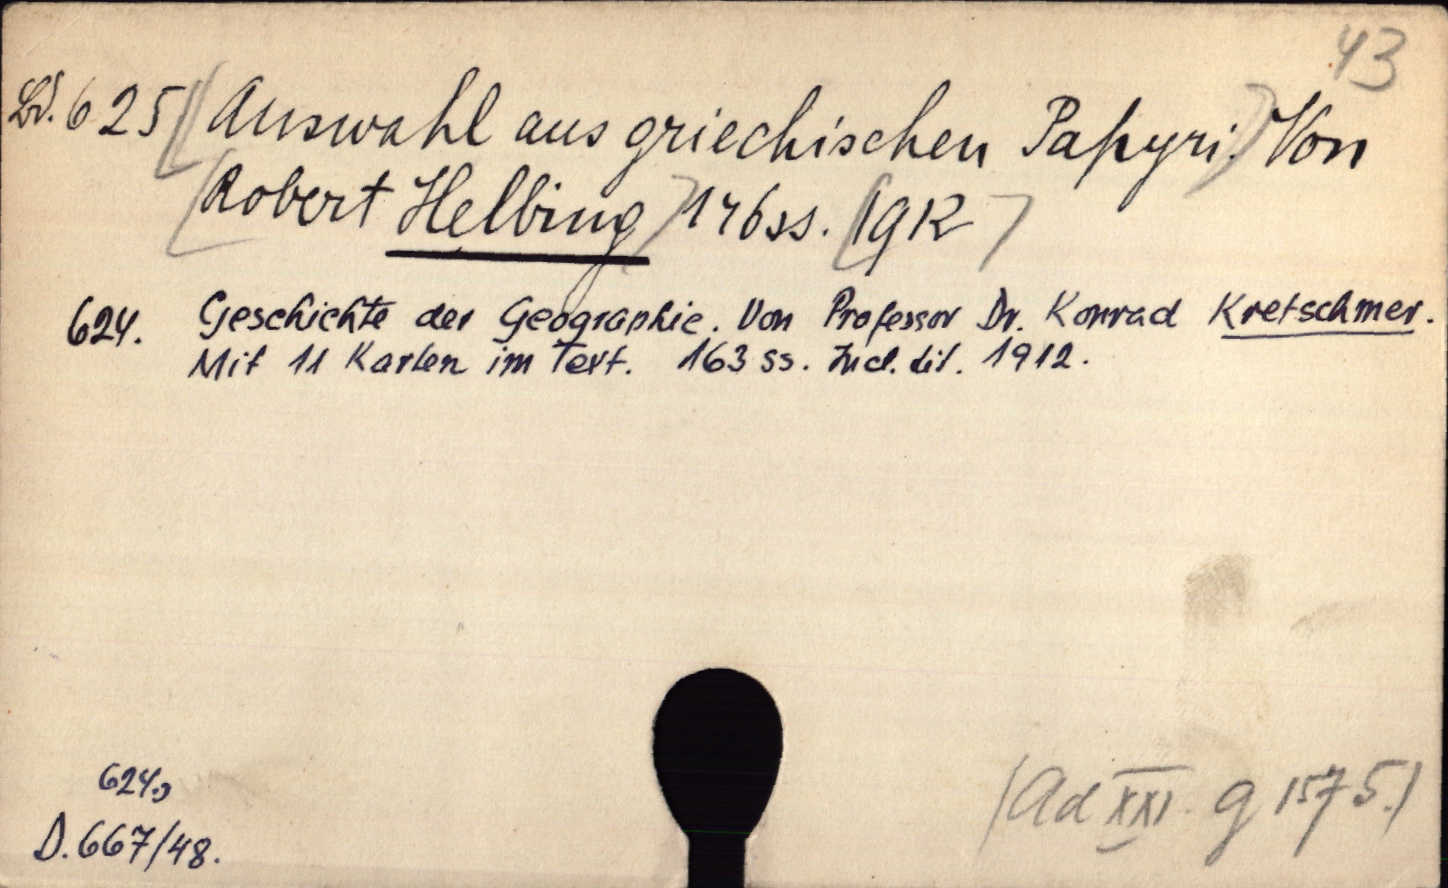 43
Bd. 625 (Auswahl aus griechischen Papyri.) Von
(Robert Helbing) 146 ss. (1912)
624. Geschichte der Geographie. Von Professor Dr. Konrad Kretschmer.
Mit 11 Karten im Text. 163 ss. Incl. tit. 1912.
624.
D. 667/48.
(Ad XXI. g 1575.)